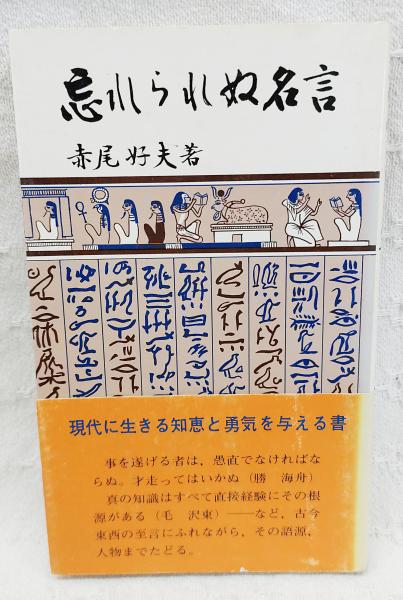 忘れられぬ名言
赤尾好夫著
現代に生きる知恵と勇気を与える書
事を遂げる者は，愚直でなければな
らぬ。才走ってはいかぬ（勝　海舟）
真の知識はすべて直接経験にその根
源がある（毛　沢東）――など，古今
東西の至言にふれながら，その語源，
人物までたどる。